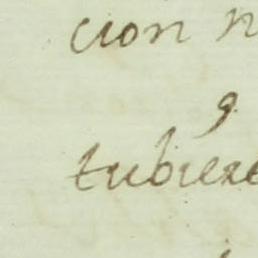 cion n
tubiere